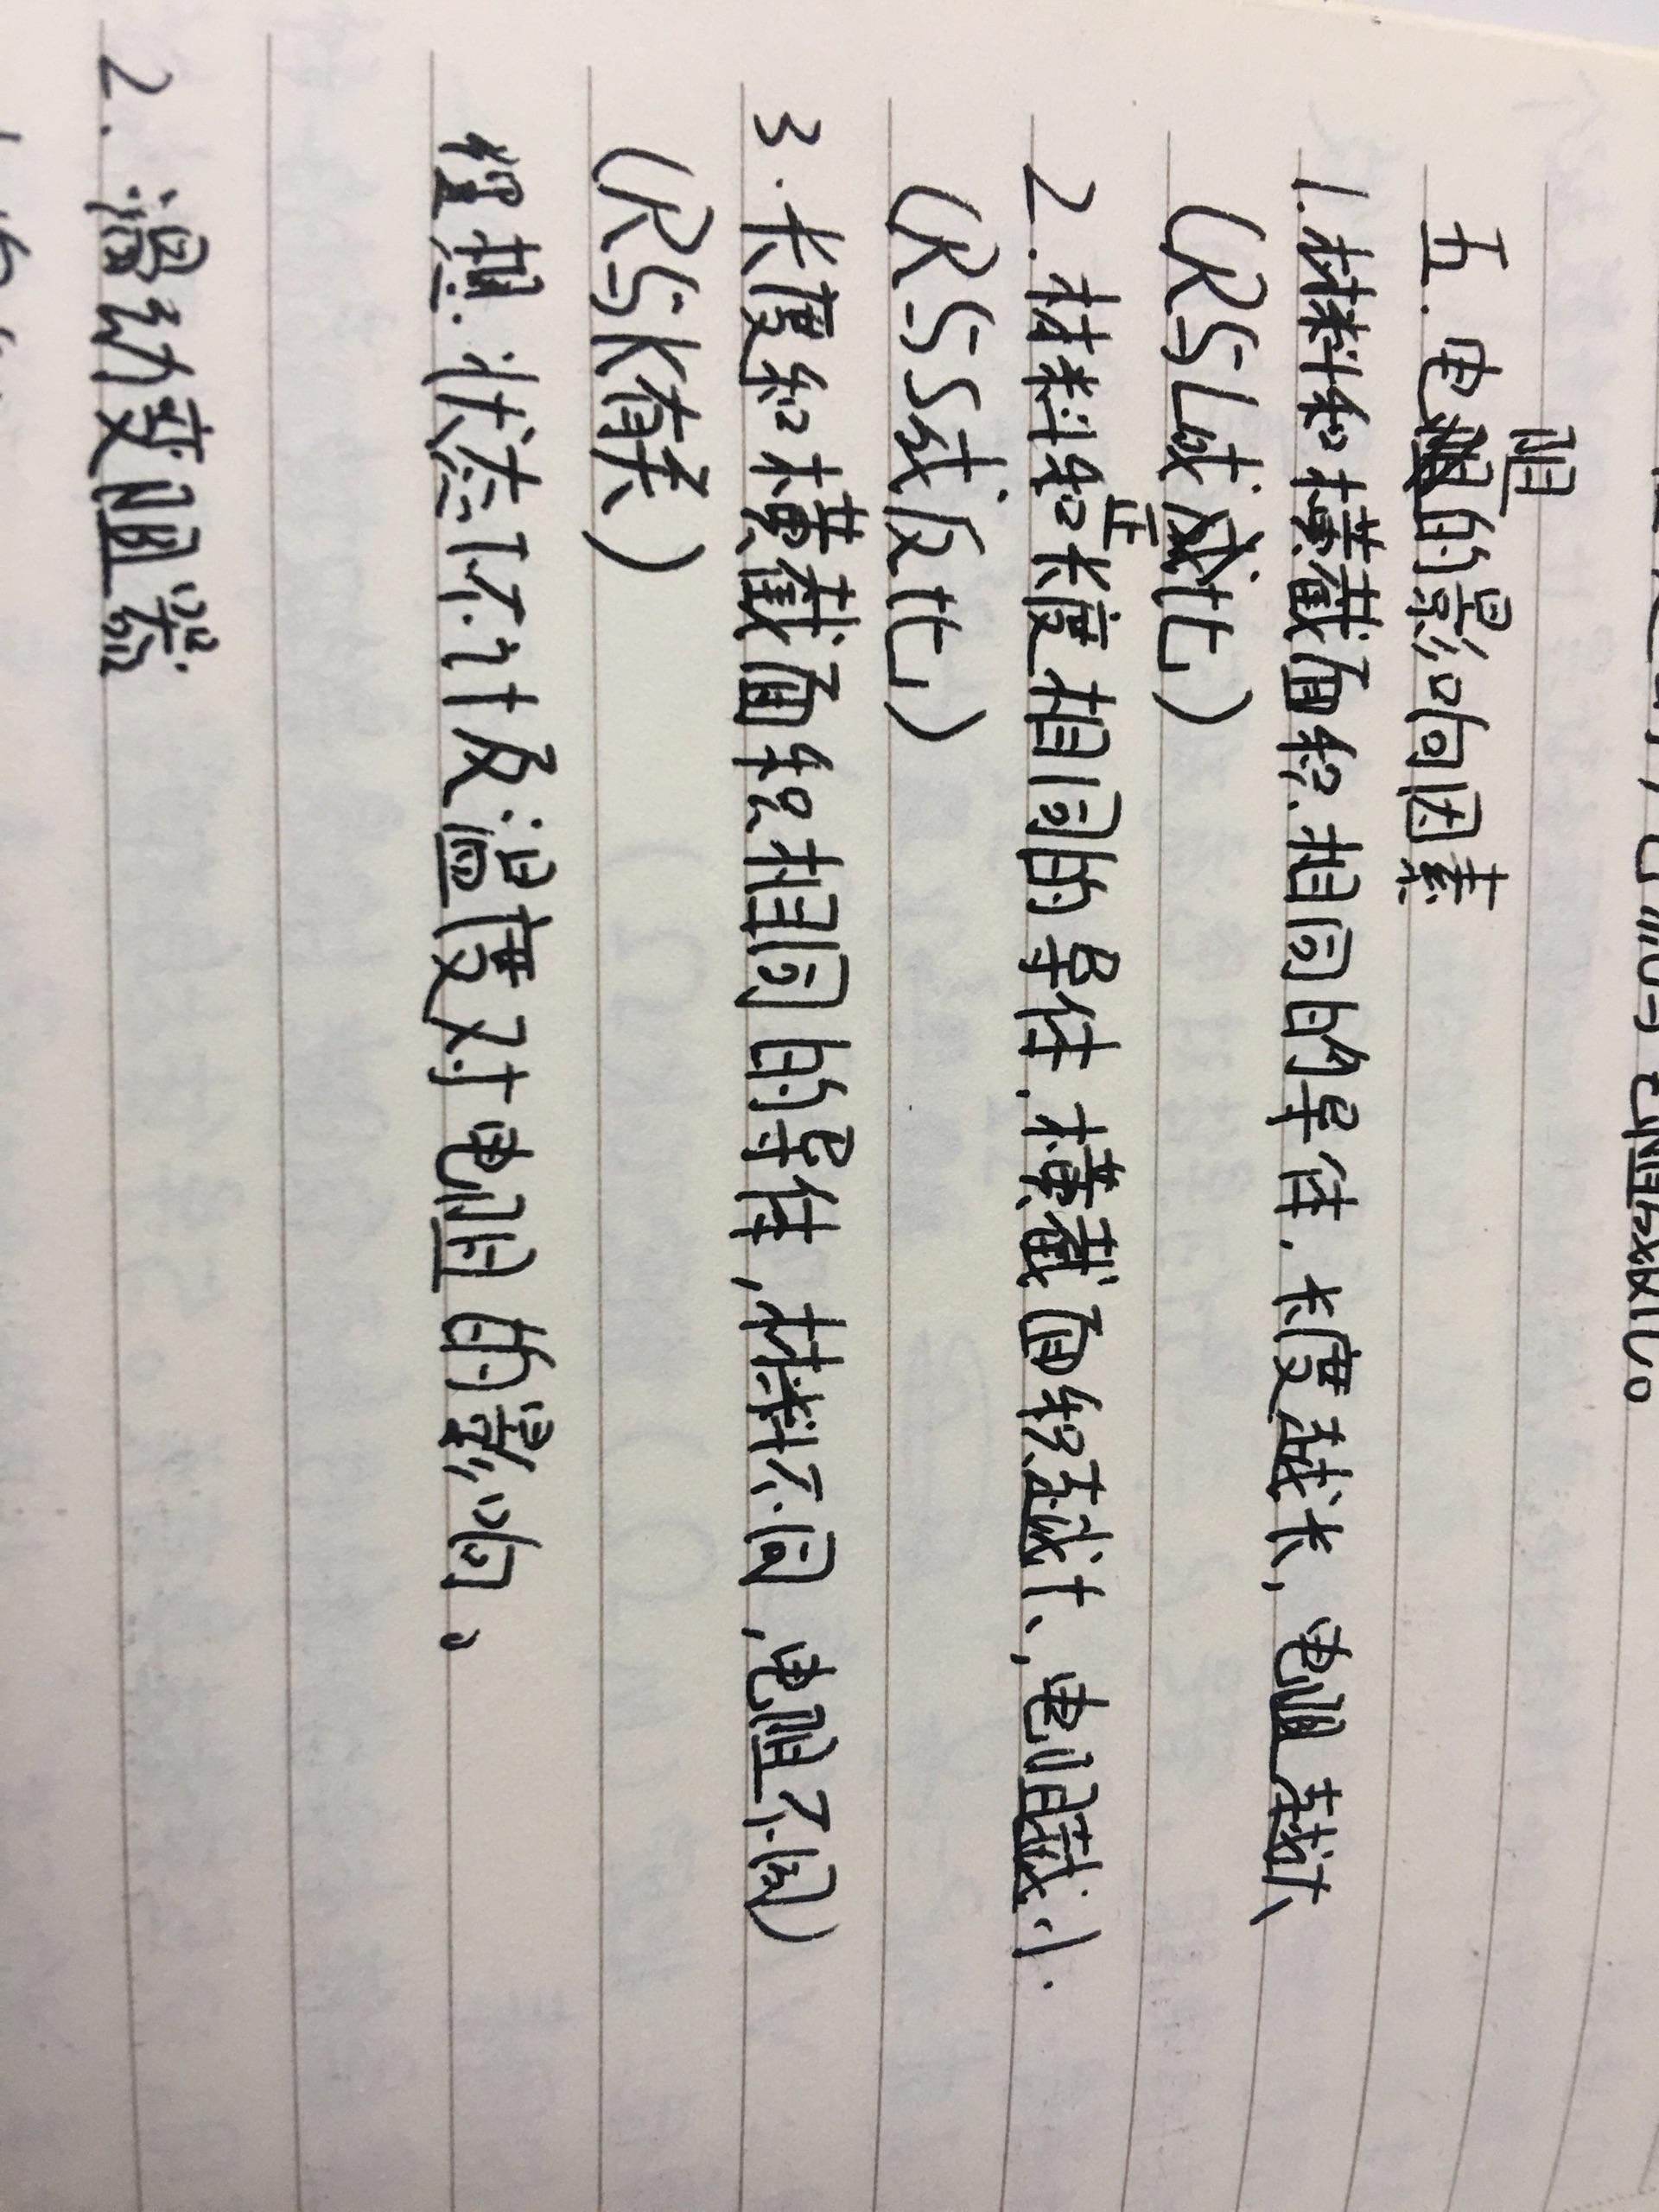 五.电阻的影响因素
1.材料和横截面积.相同的导体.长度越长,电阻越大
(R与L成正比)
2.材料和长度相同的导体.横截面积越大,电阻越小.
(R与S成反比)
3.长度和横截面积相同的导体,材料不同,电阻不同)
(R与K有关)
理想.状态下不计及温度对电阻的影响。
2.滑动变阻器